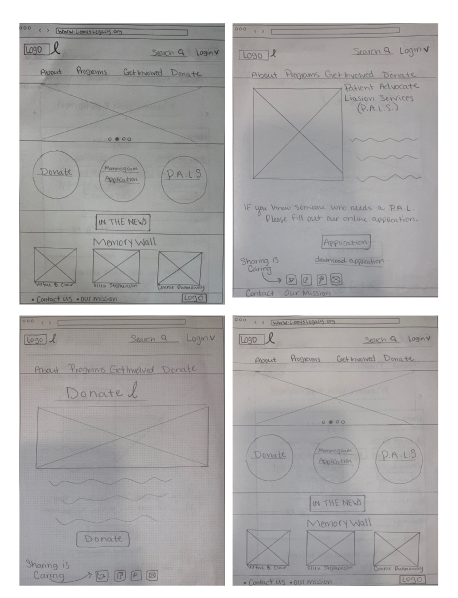 Logo
Search Login
About Programs Get Involved Donate
Donate
Mammogram
Application
P.A.L.S
IN THE NEWS
Memory Wall
• Contact US • Our Mission
Logo
Logo
Search Login
About Programs Get Involved Donate
Patient Advocate
Liasion Services
(P.A.L.S.)
If you know someone who needs a P.A.L.
Please fill out our online appliration.
Application
download application
Sharing is
Caring
Contact Our Mission
Logo
Search Login
About Programs Get Involved Donate
Donate
Donate
Sharing is
Caring
Logo
Search Login
About Programs Get Involved Donate
Donate
Mammogram
Application
P.A.L.S
IN THE NEWS
Memory Wall
• Contact US • Our Mission
Logo